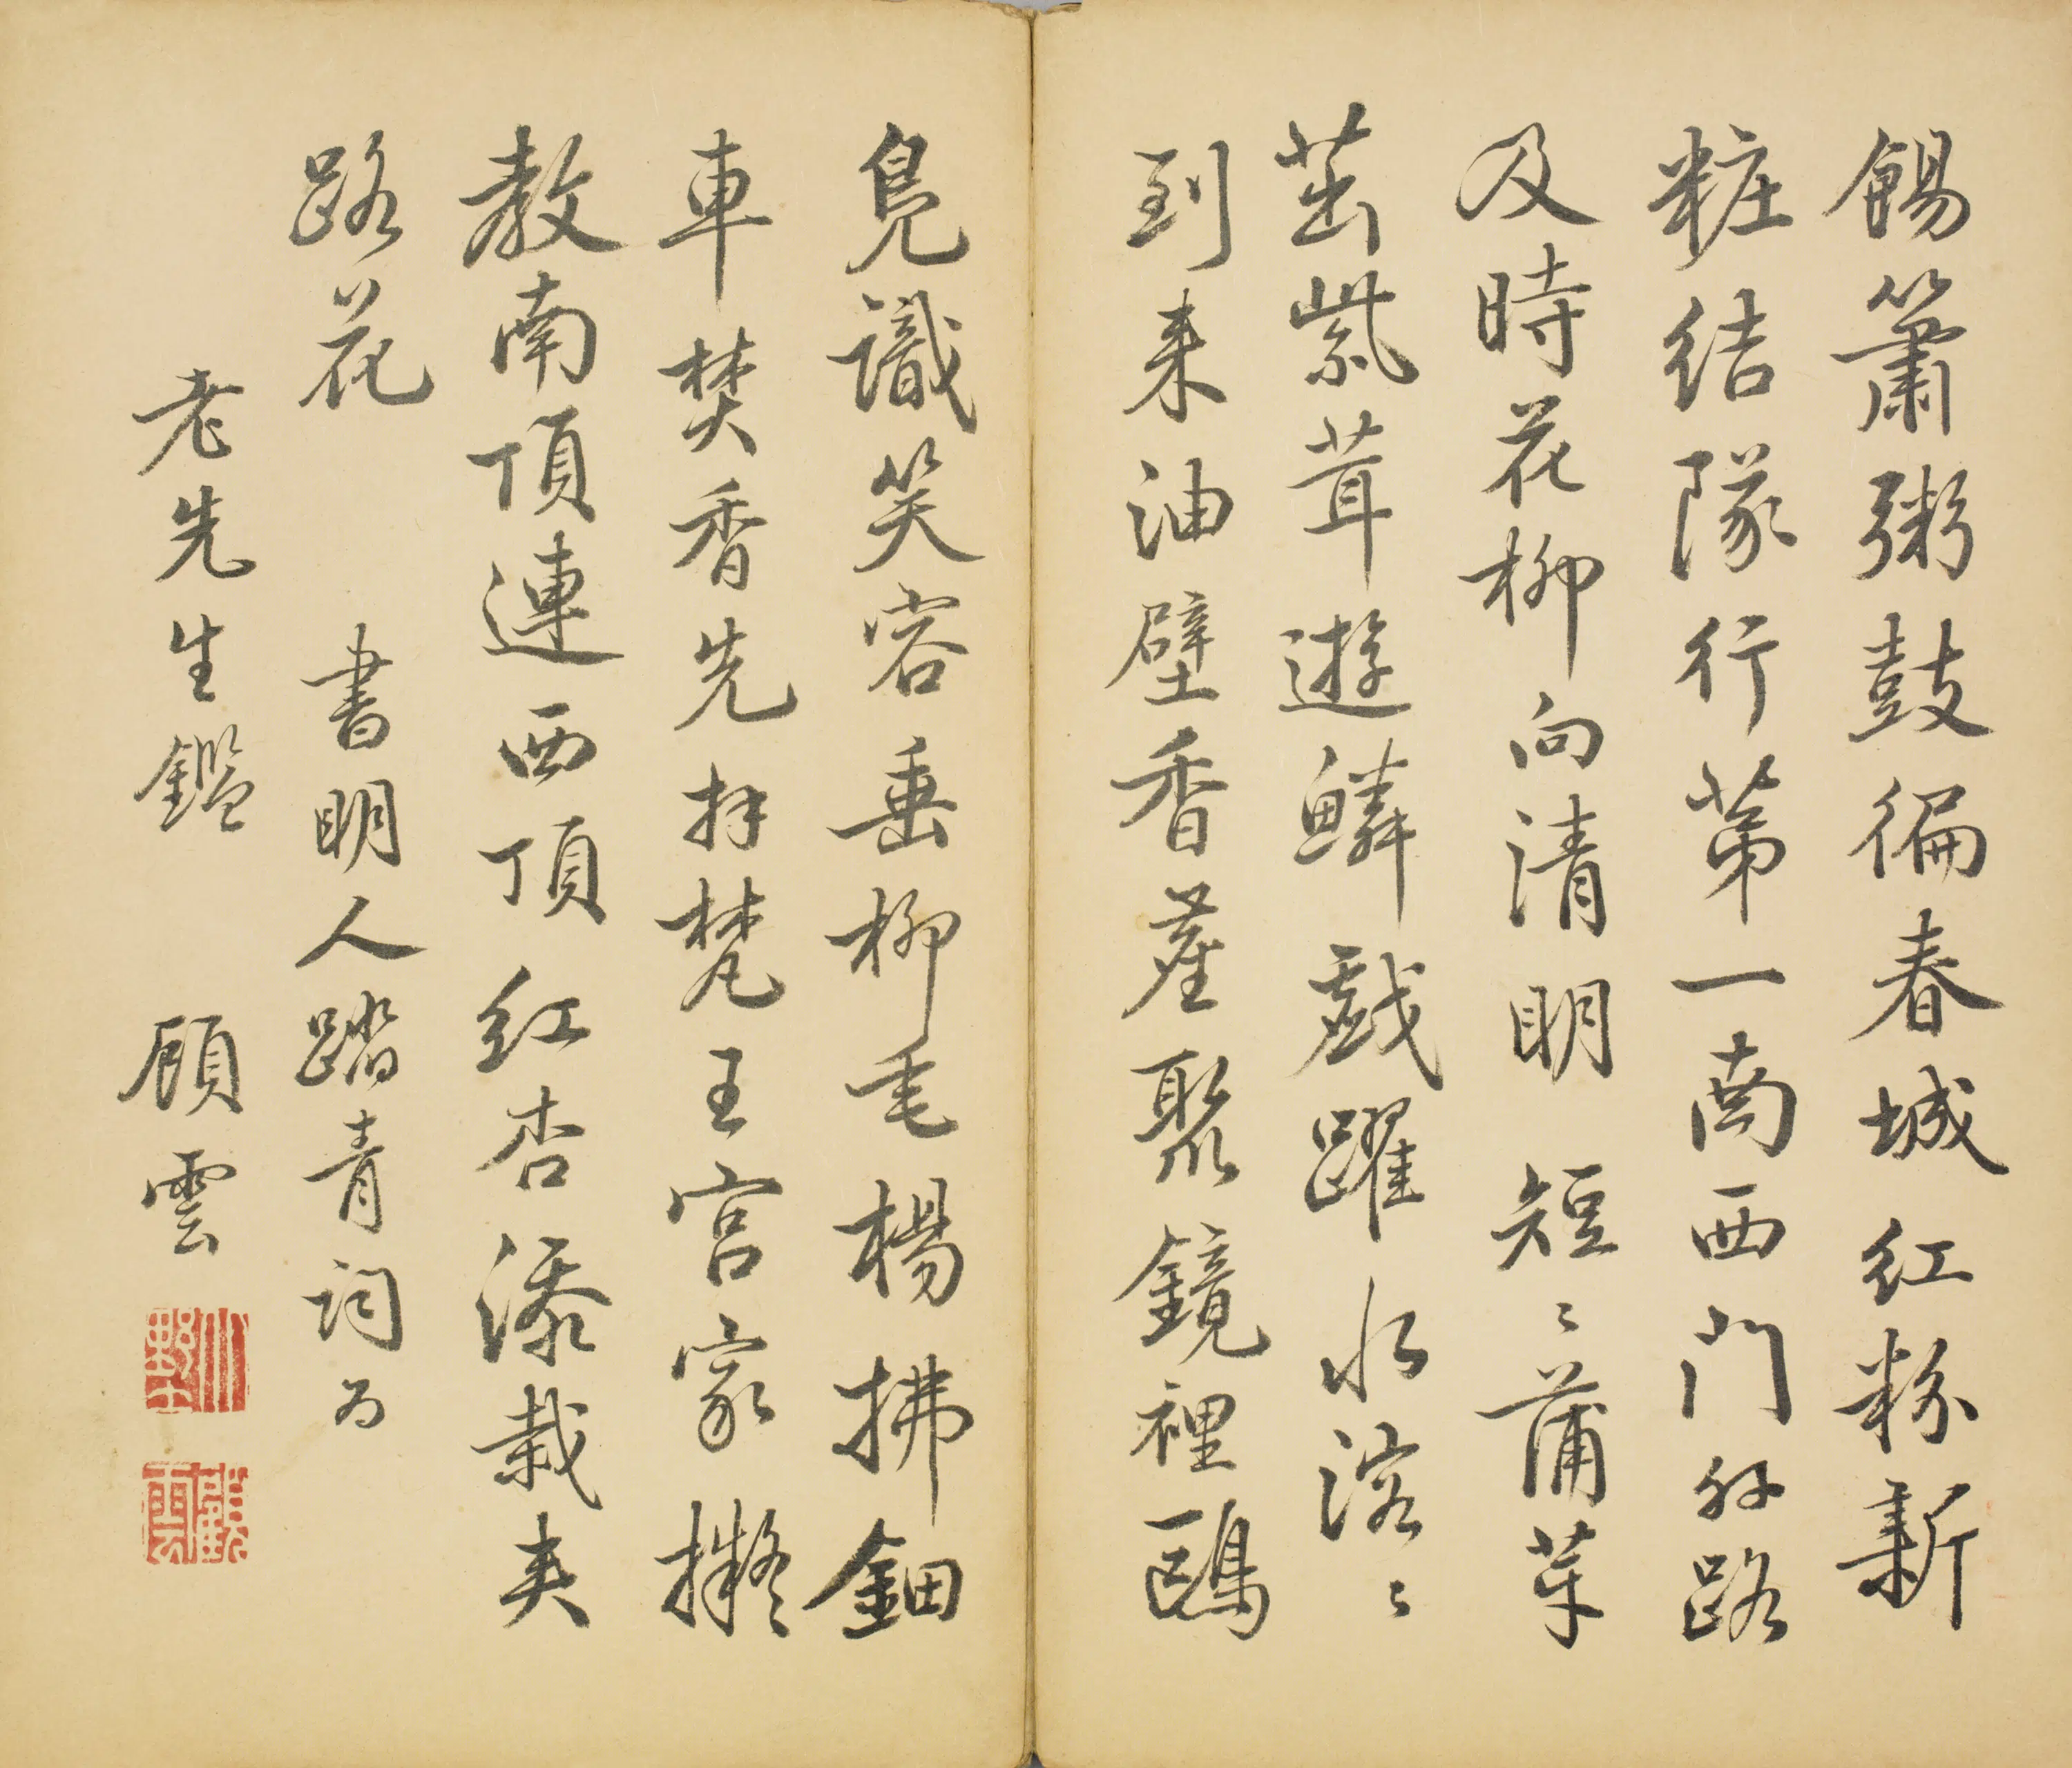 餳簫粥鼓徧春城紅粉新
粧結隊行第一南西門外路
及時花柳向清明短〻蒲芽
茁紫茸遊鱗戲躍水溶〻
到来油壁香塵聚鏡裡鷗
鳬識笑容垂柳毛楊拂鈿
車焚香先拜梵王宮家擬
教南頂連西頂紅杏添栽夾
路花
書明人踏青詞为
老先生鑑
顧雲